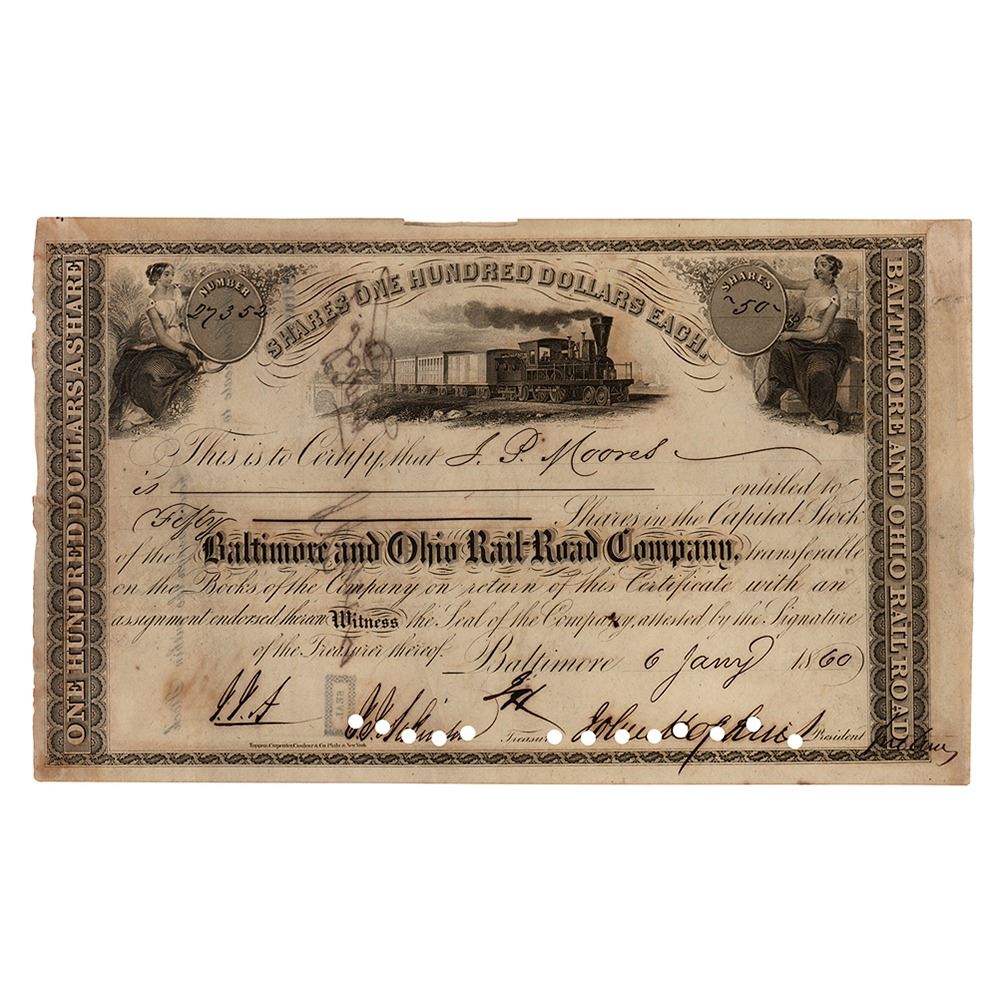 ONE HUNDRED DOLLARS A SHARE
NUMBER
27352
SHARES ONE HUNDRED DOLLARS EACH.
SHARES
50
BALTIMORE AND OHIO RAIL ROAD
This is to Certify, that J. P. Moores
is entitled to
Fifty Shares in the Capital Stock
of the Baltimore and Ohio Rail-Road Company, transferable
on the Books of the Company on return of this Certificate with an
assignment endorsed thereon Witness the Seal of the Company, attested by the Signature
of the Treasurer thereof. Baltimore 6 Jany 1860
J.I.A Treasr John Hopkins President
Toppan, Carpenter, Casilear & Co. Phila. & New York